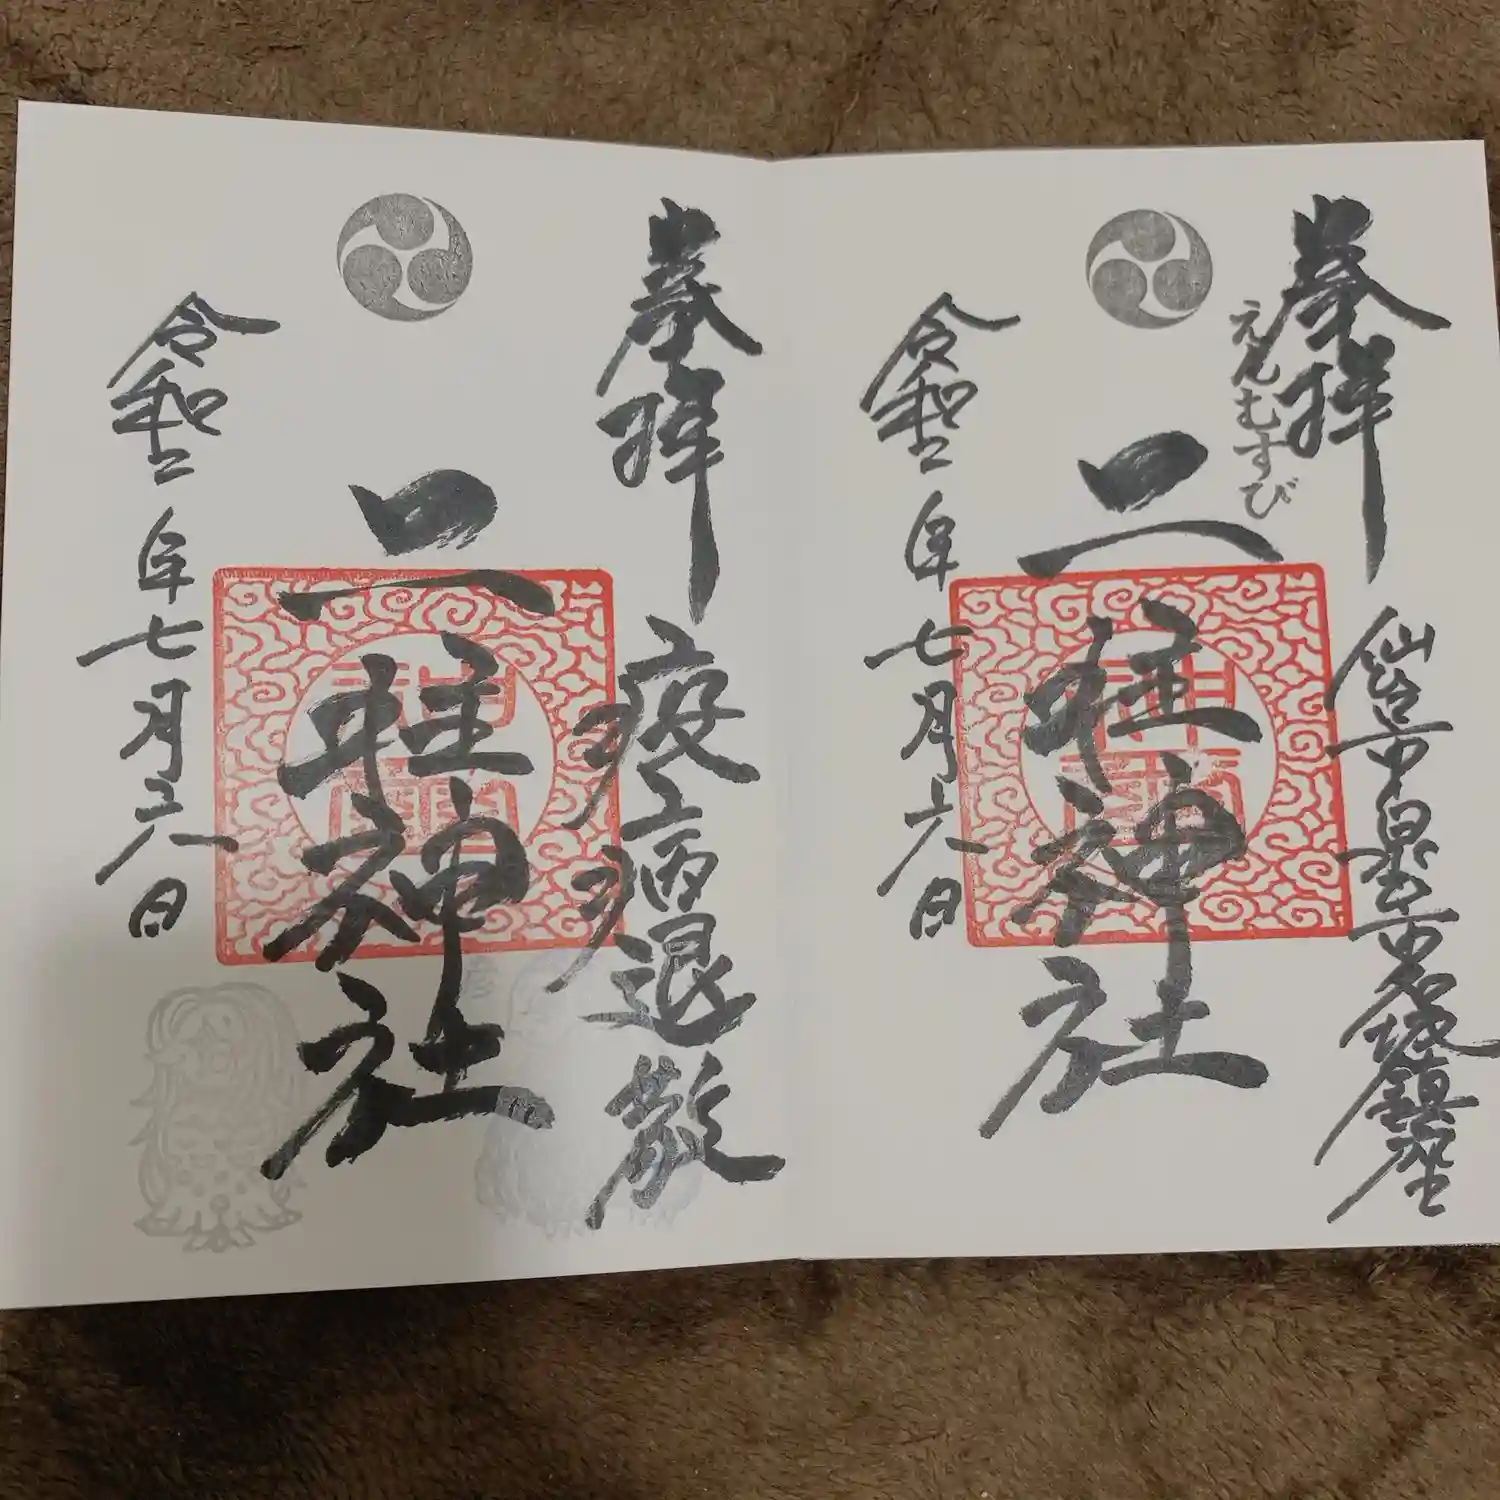 奉拝
仙台市泉市名坂鎮座
えんむすび
二柱神社
令和二年七月六日
奉拝
疫病退散
二柱神社
令和二年七月六日